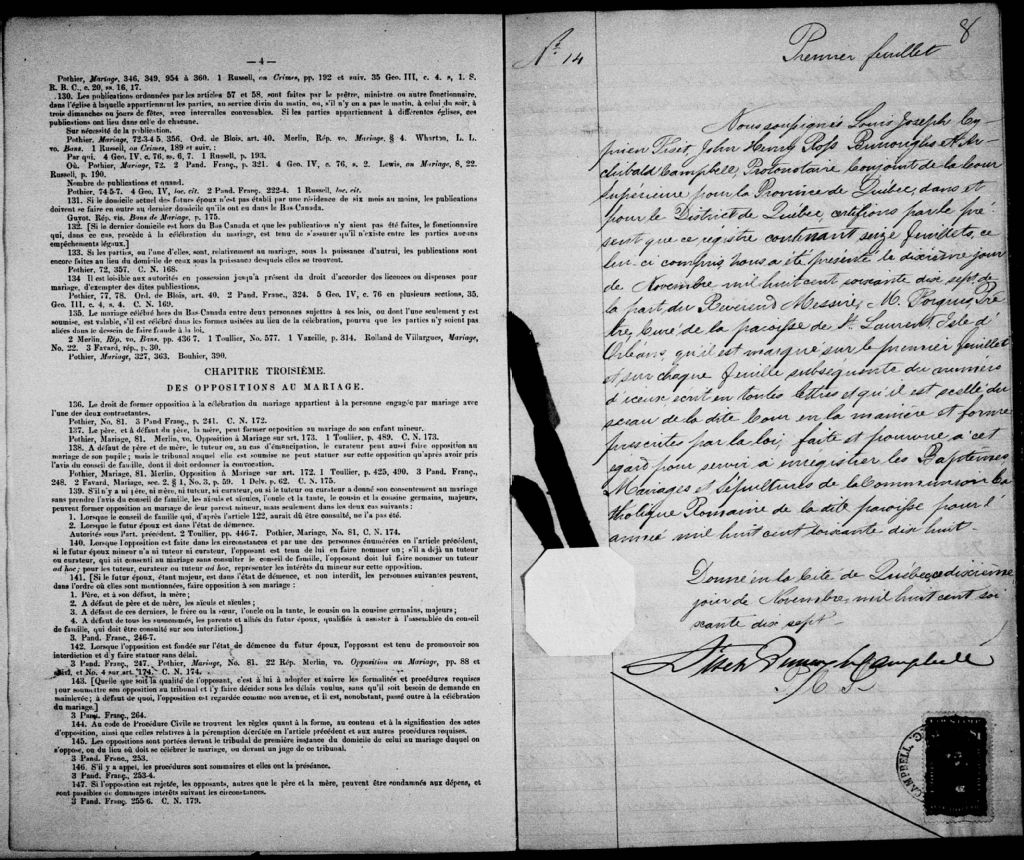 — 4 —
Pothier, Mariage, 346, 349, 954 à 360. 1 Russell, on Crimes, pp. 192 et suiv. 35 Geo. III, c. 4. s, 1. S.
R. B. C., c. 20, ss. 16, 17.
130. Les publications ordonnées par les articles 57 et 58, sont faites par le prêtre, ministre ou autre fonctionnaire,
dans l'église à laquelle appartiennent les parties, au service divin du matin, ou, s'il n'y en a pas le matin, à celui du soir, à
trois dimanches ou jours de fêtes, avec intervalles convenables. Si les parties appartiennent à différentes églises, ces
publications ont lieu dans celle de chacune.
Sur nécessité de la publication.
Pothier, Mariage, 72-3-4 5, 356. Ord. de Blois, art. 40. Merlin, Rép. vo. Mariage, § 4. Wharton, L. L.
vo. Bans. 1 Russell, on Crimes, 189 et suiv. :
Par qui. 4 Geo. IV, c. 76, ss. 6, 7. 1 Russell, p. 193.
Où. Pothier, Mariage, 72. 2 Pand. Franç., p. 321. 4 Geo. IV, c. 76, s. 2. Lewis, on Mariage, 8, 22.
Russell, p. 190.
Nombre de publications et quand.
Pothier, 74-5-7. 4 Geo. IV, loc. cit. 2 Pand. Franç. 222-4. 1 Russell, loc. cit.
131. Si le domicile actuel des futurs époux n'est pas établi par une résidence de six mois au moins, les publications
doivent se faire en outre au dernier domicile qu'ils ont eu dans le Bas Canada.
Guyot. Rép. vis. Bans de Mariage, p. 175.
132. [Si le dernier domicile est hors du Bas Canada et que les publications n'y aient pas été faites, le fonctionnaire
qui, dans ce cas, procède à la célébration du mariage, est tenu de s'assurer qu'il n'existe entre les parties aucuns
empêchements légaux.]
133. Si les parties, ou l'une d'elles, sont, relativement au mariage, sous la puissance d'autrui, les publications sont
encore faites au lieu du domicile de ceux sous la puissance desquels elles se trouvent.
Pothier, 72, 357. C. N. 168.
134 Il est loisible aux autorités en possession jusqu'à présent du droit d'accorder des licences ou dispenses pour
mariage, d'exempter des dites publications.
Pothier, 77, 78. Ord. de Blois, art. 40. 2 Pand. Franc., 324. 5 Geo. IV, c. 76 en plusieurs sections, 35.
Geo. III, c. 4, s. 4. C. N. 169.
135. Le mariage célébré hors du Bas Canada entre deux personnes sujettes à ses lois, ou dont l'une seulement y est
soumise, est valable, s'il est célébré dans les formes usitées au lieu de la célébration, pourvu que les parties n'y soient pas
allées dans le dessein de faire fraude à la loi.
2 Merlin, Rép. vo. Bans, pp. 436 7. 1 Toullier, No. 577. 1 Vazeille, p. 314. Rolland de Villargues, Mariage,
No. 22. 3 Favard, rép., p. 30.
Pothier, Mariage, 327, 363. Bouhier, 390.
CHAPITRE TROISIÈME.
DES OPPOSITIONS AU MARIAGE.
136. Le droit de former opposition à la célébration du mariage appartient à la personne engagée par mariage avec
l'une des deux contractantes.
Pothier, No. 81. 3 Pand Franç., p. 241. C. N. 172.
137. Le père, et à défaut du père, la mère, peut former opposition au mariage de son enfant mineur.
Pothier, Mariage, 81. Merlin, vo. Opposition à Mariage sur art. 173. 1 Toullier, p. 489. C. N. 173.
138. A défaut de père et de mère, le tuteur ou, au cas d'émancipation, le curateur peut aussi faire opposition au
mariage de son pupile ; mais le tribunal auquel elle est soumise ne peut statuer sur cette opposition qu'après avoir pris
l'avis du conseil de famille, dont il doit ordonner la convocation.
Pothier, Mariage, 81. Merlin, Opposition à Mariage sur art. 172. 1 Toullier, p. 425, 490. 3 Pand. Franç.,
248. 2 Favard, Mariage, sec. 2, § 1, No. 3, p. 59. 1 Delv. p. 62. C. N. 175.
139. S'il n'y a ni père, ni mère, ni tuteur, ni curateur, ou si le tuteur ou curateur a donné son consentement au mariage
sans prendre l'avis du conseil de famille, les aïeuls et aïeules, l'oncle et la tante, le cousin et la cousine germains, majeurs,
peuvent former opposition au mariage de leur parent mineur, mais seulement dans les deux cas suivants :
1. Lorsque le conseil de famille qui, d'après l'article 122, aurait dû être consulté, ne l'a pas été.
2. Lorsque le futur époux est dans l'état de démence.
Autorités sous Part. précédent. 2 Toullier, pp. 446-7. Pothier, Mariage, No. 81, C. N. 174.
140. Lorsque l'opposition est faite dans des circonstances et par une des personnes énumérées en l'article précédent,
si le futur époux mineur n'a ni tuteur ni curateur, l'opposant est tenu de lui en faire nommer un ; s'il a déjà un tuteur
ou curateur, qui ait consenti au mariage sans consulter le conseil de famille, l'opposant doit lui faire nommer un tuteur
ad hoc ; pour les tuteur, curateur ou tuteur ad hoc, représenter les intérêts du mineur sur cette opposition.
141. [Si le futur époux, étant majeur, est dans l'état de démence, et non interdit, les personnes suivantes peuvent,
dans l'ordre où elles sont mentionnées, faire opposition à son mariage :
1. Père, et à son défaut, la mère ;
2. A défaut de père et de mère, les aïeuls et aïeules ;
3. A défaut de ces derniers, le frère ou la sœur, l'oncle ou la tante, le cousin ou la cousine germains, majeurs ;
4. A défaut de tous les susnommés, les parents et alliés du futur époux, qualifiés à assister à l'assemblée du conseil
de famille, qui doit être consulté sur son interdiction.]
3. Pand. Franc., 246-7.
142. Lorsque l'opposition est fondée sur l'état de démence du futur époux, l'opposant est tenu de promouvoir son
interdiction et d'y faire statuer sans délai.
3 Pand. Franç., 247. Pothier, Mariage, No. 81. 22 Rép. Merlin, vo. Opposition au Mariage, pp. 88 et
et No. 4 sur art. 174. C. N. 174.
143. [Quelle que soit la qualité de l'opposant, c'est à lui à adopter et suivre les formalités et procédures requises
pour soumettre son opposition au tribunal et l'y faire décider sous les délais voulus, sans qu'il soit besoin de demande en
mainlevée ; à défaut de quoi, l'opposition est regardée comme non avenue, et il est, nonobstant, passé outre à la célébration
du mariage.]
3 Pand. Franç., 264.
144. Au code de Procédure Civile se trouvent les règles quant à la forme, au contenu et à la signification des actes
d'opposition, ainsi que celles relatives à la péremption décrétée en l'article précédent et aux autres procédures requises.
145. Les oppositions sont portées devant le tribunal de première instance du domicile de celui au mariage duquel on
s'oppose, ou du lieu où doit se célébrer le mariage, ou devant un juge de ce tribunal.
3 Pand. Franc., 253.
146. S'il y a appel, les procédures sont sommaires et elles ont la préséance.
3 Pand. Franç., 253-4.
147. Si l'opposition est rejetée, les opposants, autres que le père et la mère, peuvent être condamnés aux dépens, et
sont passibles de dommages intérêts suivant les circonstances.
3 Pand. Franç. 255-6. C. N. 179.
8
Nº. 14
Premier feuillet
Nous soussignés Louis Joseph Cy-
prien Fiset, John Henry Ross Burroughs et Ar-
chibald Campbell, Protonotaire Conjoint de la Cour
Supérieure pour la Province de Québec, dans et
pour le District de Québec certifions par le pré-
sent que ce régistre contenant seize feuillets, ce
lui-ci compris, nous a été présenté le dixième jour
de Novembre mil huit cent soixante dix sept de
la part du Révérend Messire, M. Forgues Prê
tre, Curé de la paroisse de St. Laurent, Isle d'
Orléans, qu'il est marqué sur le premier feuillet
et sur chaque feuille subséquente du numéro
d'iceux écrit en toutes lettres et qu'il est scellé du
sceau de la dite Cour en la manière et forme
prescrites par la loi, faite et pourvue à cet
égard pour servir à enregistrer les Baptêmes,
Mariages et Sépultures de la Communion Ca
tholique Romaine de la dite paroisse pour l'
année mil huit cent soixante dix huit.
Donné en la Cité de Québec, ce dixième
jour de Novembre mil huit cent soi
xante dix sept
Fiset Burroughs Campbell
P. C. S.
CAMPBELL